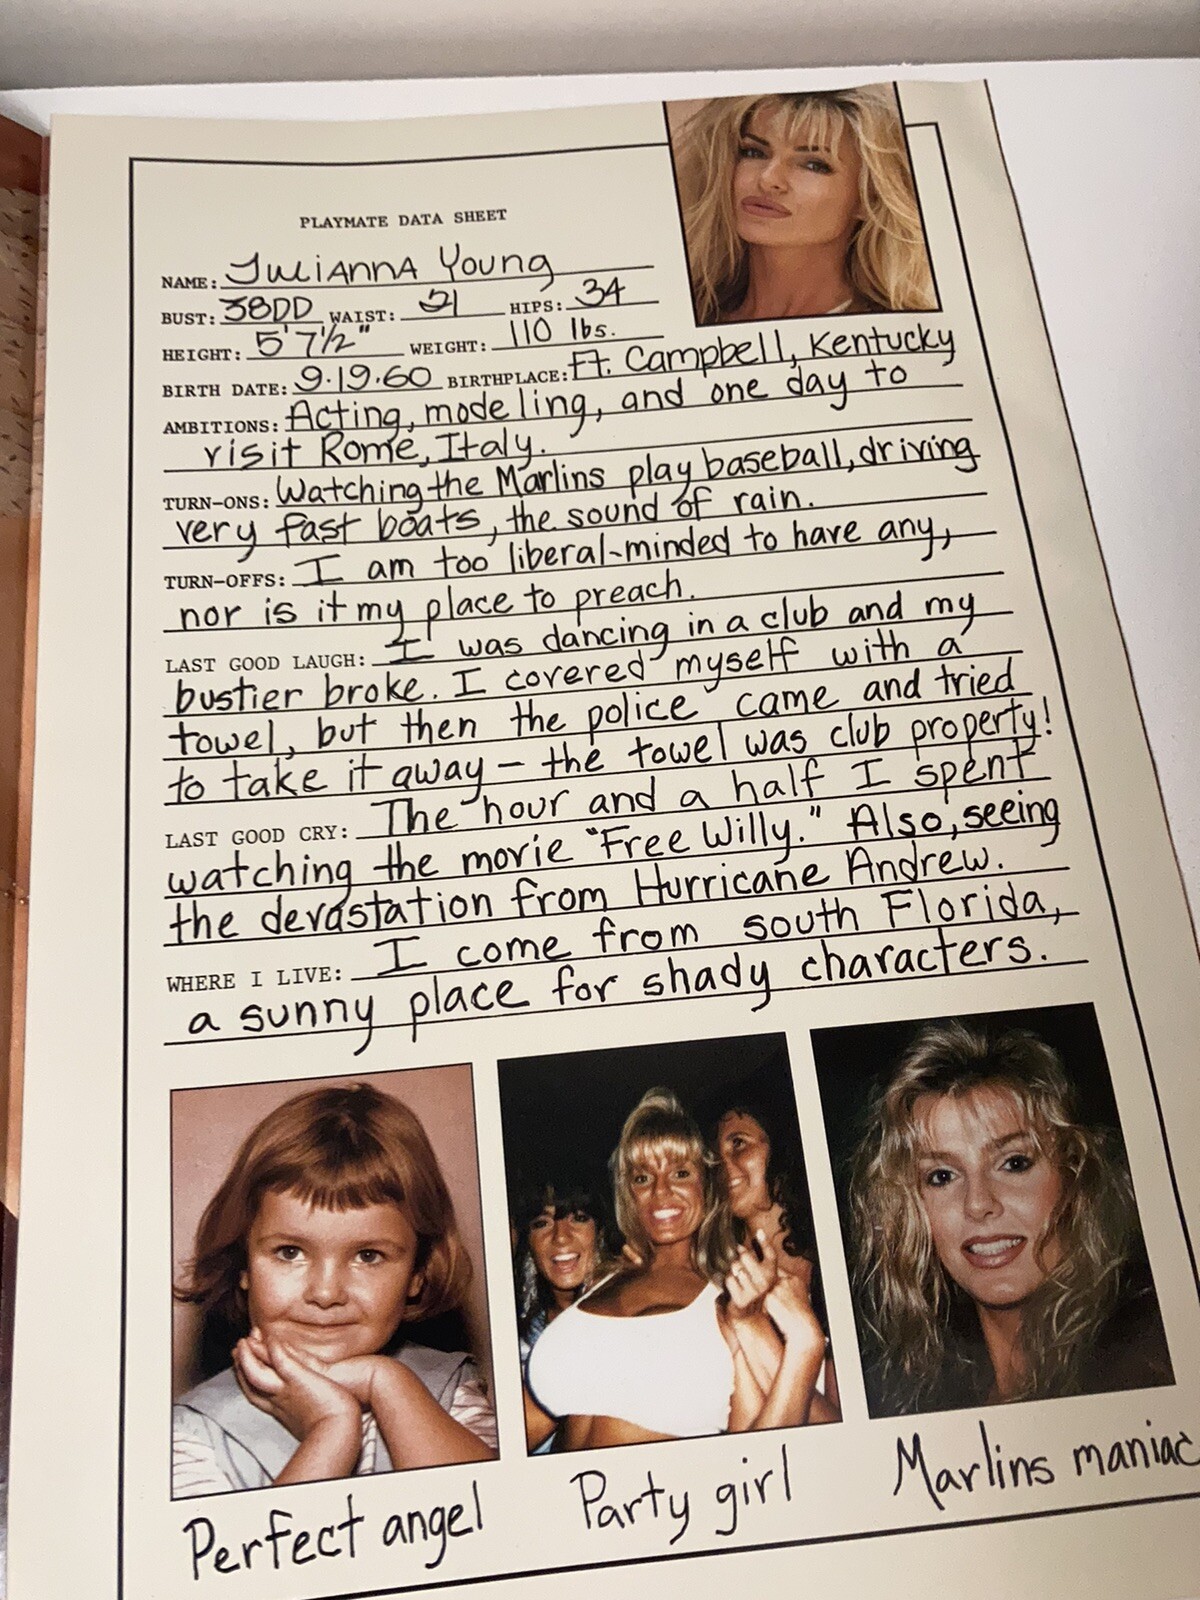 PLAYMATE DATA SHEET
NAME: Julianna Young
BUST: 38DD WAIST: 21 HIPS: 34
HEIGHT: 5'7½" WEIGHT: 110 lbs.
BIRTH DATE: 9.19.60 BIRTHPLACE: Ft. Campbell, Kentucky
AMBITIONS: Acting, modeling, and one day to
visit Rome, Italy.
TURN-ONS: Watching the Marlins play baseball, driving
very fast boats, the sound of rain.
TURN-OFFS: I am too liberal-minded to have any,
nor is it my place to preach.
LAST GOOD LAUGH: I was dancing in a club and my
bustier broke. I covered myself with a
towel, but then the police came and tried
to take it away – the towel was club property!
LAST GOOD CRY: The hour and a half I spent
watching the movie "Free Willy." Also, seeing
the devastation from Hurricane Andrew.
WHERE I LIVE: I come from south Florida,
a sunny place for shady characters.
Perfect angel
Party girl
Marlins maniac